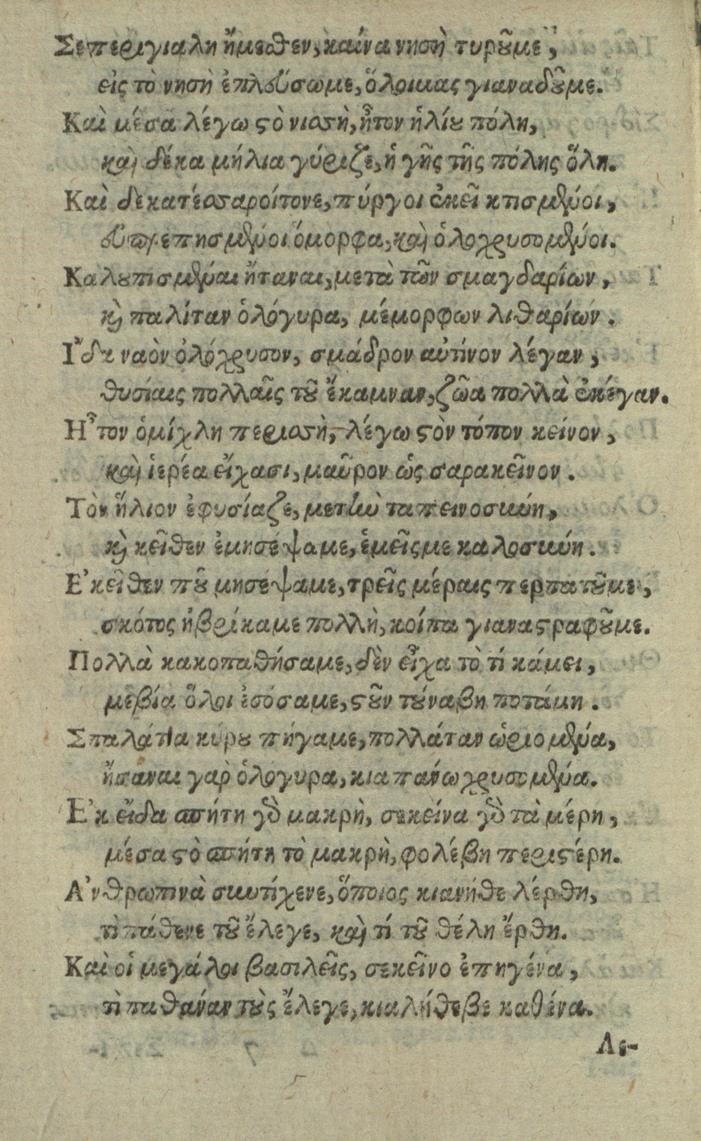 Σεπεριγιαλη ἤμεθεν, καίνα νησὴ τυροῦμε,
εἰς τὸ νησὴ ἐπλούσωμε, ὅλοιμας γιαναδοῦμε.
Καὶ μέσα λέγω ςὸ νιασὴ, ἦτον ἡλίου πόλη,
καὶ δέκα μήλια γύριζε, ἡ γῆς τῆς πόλης ὅλη.
Καὶ δεκατέσσαροίτονε, πύργοι ἐκεῖ κτισμένοι,
ὄμορφα, καὶ ὁλοχρυσομένοι.
Καλουπισμέναι ἤταναι, μετὰ τῶν σμαγδαρίων,
κὶ παλίταν ὁλόγυρα, μέμορφων λιθαρίων.
Ἴδα ναὸν ὁλόχρυσον, σμάδρον αὐτίνον λέγαν,
θυσίαις πολλαῖς τοῦ ἔκαμναν, ζῶα πολλὰ ἐκέγαν.
Ἦτον ὁμίχλη περιασὴ, λέγω ςὸν τόπον κείνον,
καὶ ἱερέα εἴχασι, μαῦρον ὡς σαρακεῖνον.
Τὸν ἥλιον ἐφυσίαζε, μετὴν ταπεινοσύνη,
κὶ κεῖθεν ἐμησέψαμε, ἐμεῖςμε καλοσύνη.
Ἐκεῖθεν ποῦ μησέψαμε, τρεῖς μέραις περπατοῦμε,
σκότος ηὑρίκαμε πολλὴ, κοίπα γιαναςραφοῦμε.
Πολλὰ κακοπαθήσαμε, δὲν εἶχα τὸ τί κάμει,
μεβία ὅλοι ἐσόσαμε, ςοῦν τούναβη ποτάμη.
Σπαλάτια κύρου πήγαμε, πολλάταν ὡριομένα,
ἤσαναι γαρ ὁλόγυρα, κιαπάνω χρυσομένα.
Ἐκεῖδα σπήτη γὸ μακρὴ, σεκείνα γὸ τὰ μέρη,
μέσα ςὸ σπήτη τὸ μακρὴ, φολέβη περιςέρη.
Ἀνθρωπινὰ συντίχενε, ὅποιος κιανήθε λέρθη,
τὶ πάθενε τοῦ ἔλεγε, καὶ τί τοῦ θέλη ἔρθη.
Καὶ οἱ μεγάλοι βασιλεῖς, σεκεῖνο ἐπηγένα,
τὶ παθαίναν τοὺς ἔλεγε, κιαλήθεβε καθένα.
Λε-